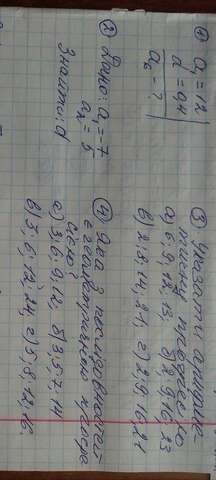 ① a₁ = 12
d = 0,4
a₆ - ?
② Дано: a₁ = -7
a₂ = 5
Знайти: d
③ Указати арифме-
тичну прогресію
а) 6, 9, 12, 13 б) 2, 9, 16, 23
в) 2, 8, 14, 21, г) 2, 9, 16, 21
④ Яка з послідовностей
є геометричною прогре
сією
а) 3, 6, 9, 12, б) 3, 5, 7, 14
в) 3, 6, 12, 24, г) 5, 8, 12, 16.